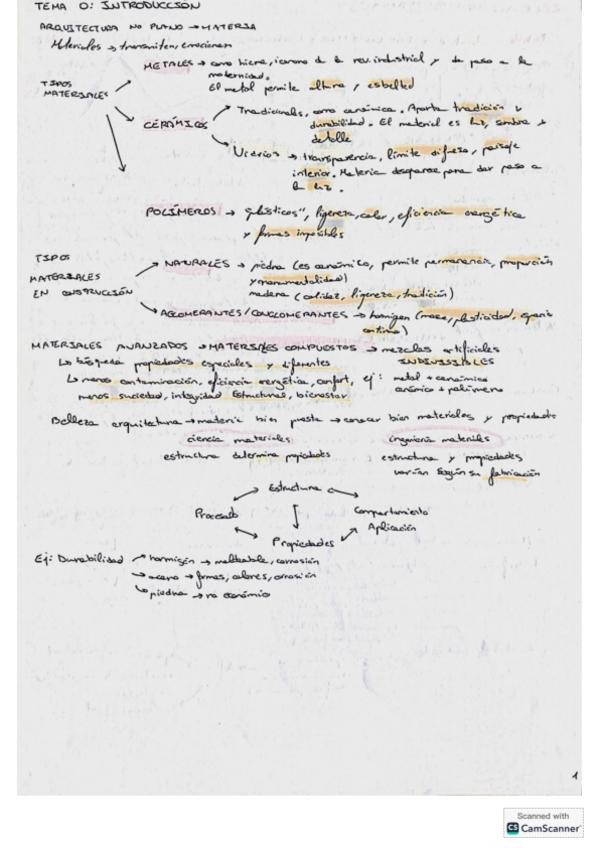 TEMA 0: INTRODUCCIÓN
ARQUITECTURA NO PLANO → MATERIA
Materiales → transmiten emociones
TIPOS MATERIALES
METALES → como hierro, icono de la rev. industrial y da paso a la
modernidad.
El metal permite altura y esbeltez
CERÁMICOS
Tradicionales, como cerámica. Aporta tradición y
durabilidad. El material es luz, sombra y
detalle
Vidrios → transparencia, límite difuso, paisaje
interior. Materia desaparece para dar paso a
la luz.
POLÍMEROS → "plásticos", ligereza, color, eficiencia energética
y formas imposibles
TIPOS
MATERIALES
EN CONSTRUCCIÓN
NATURALES → piedra (es cerámico, permite permanencia, proporción
y monumentalidad)
madera (calidez, ligereza, tradición)
AGLOMERANTES/CONGLOMERANTES → hormigón (masa, plasticidad, espacio
continuo)
MATERIALES AVANZADOS → MATERIALES COMPUESTOS → mezclas artificiales
INDIVISIBLES
↳ búsqueda propiedades especiales y diferentes
↳ menos contaminación, eficiencia energética, confort, ej: metal + cerámico
menos suciedad, integridad estructuras, bienestar cerámico + polímero
Belleza arquitectura → materia bien puesta → conocer bien materiales y propiedades
ciencia materiales ingeniería materiales
estructura determina propiedades estructura y propiedades
varían según su fabricación
Estructura
Procesado Comportamiento
Aplicación
Propiedades
Ej: Durabilidad → hormigón → moldeable, corrosión
→ acero → formas, colores, corrosión
↳ piedra → no económico
1
Scanned with
CS CamScanner